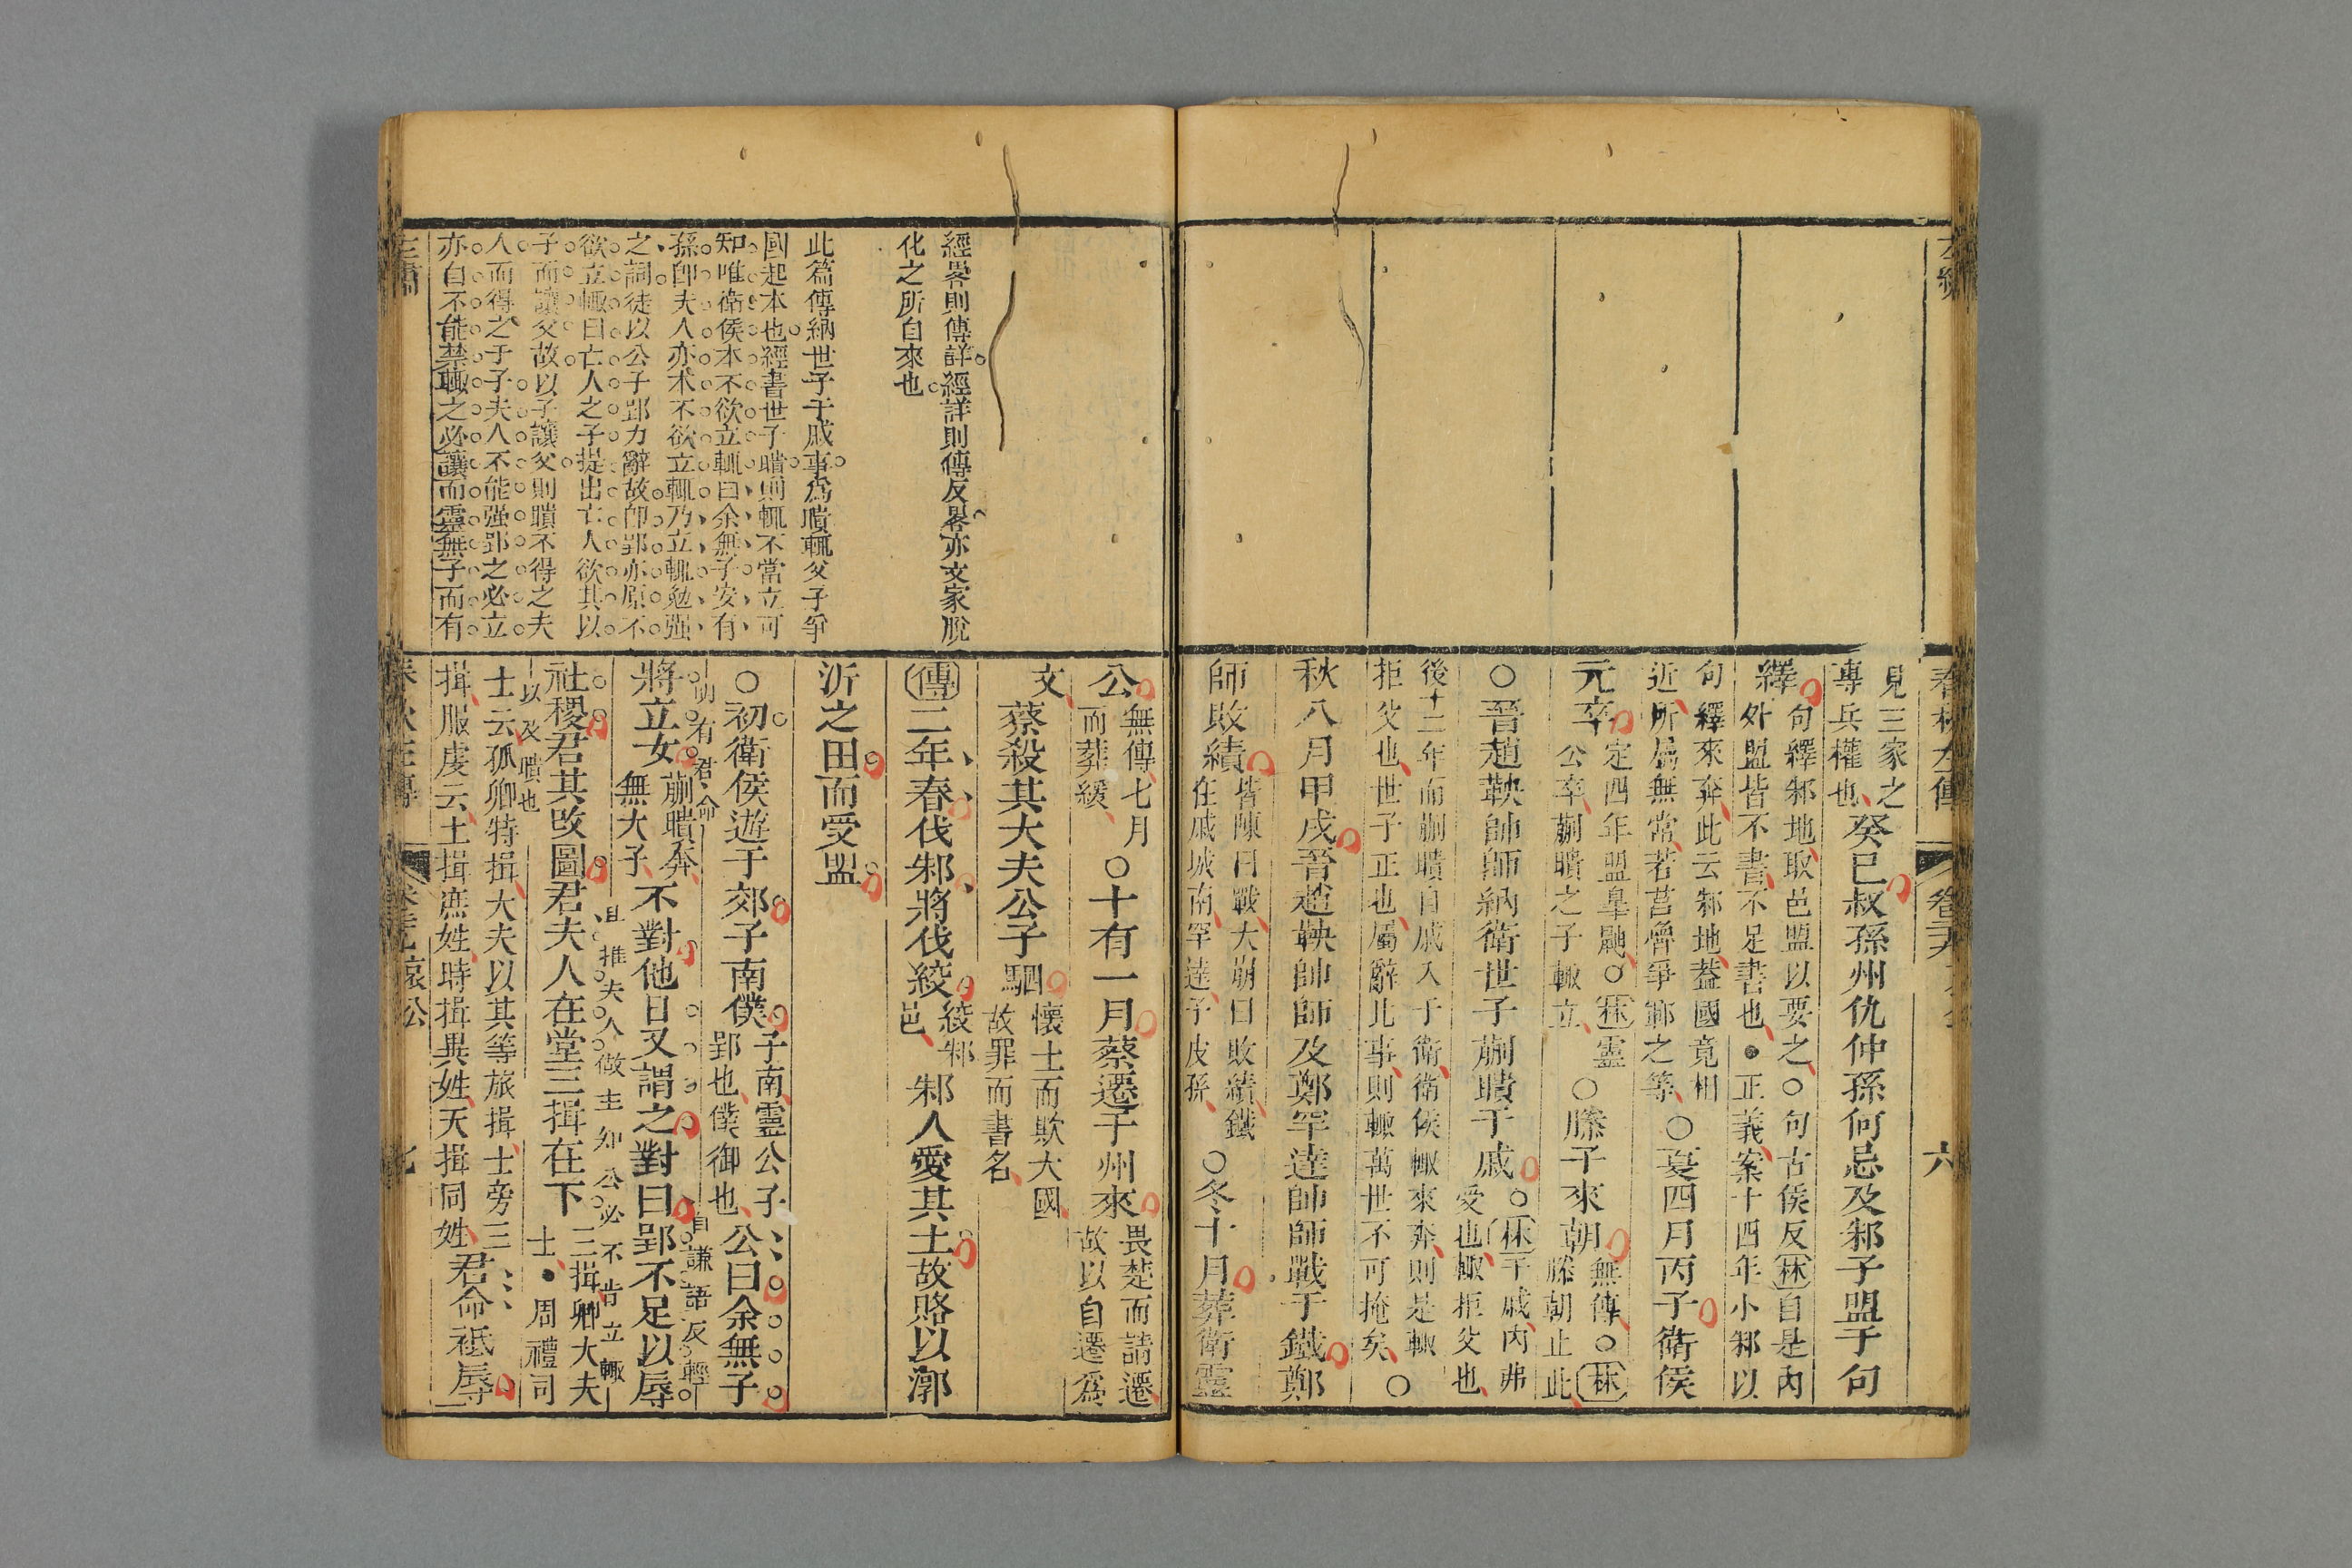 見三家之
專兵權也
癸巳叔孫州仇仲孫何忌及邾子盟于句
繹
句繹邾地取邑盟以要之○句古侯反林自是內
外盟皆不書不足書也●正義案十四年小邾以
句繹來奔此云邾地蓋國竟相
近所屬無常若莒魯爭鄆之等
○夏四月丙子衛侯
元卒
定四年盟皋鼬○林靈
公卒蒯聵之子輒立
○滕子來朝
無傳○林
滕朝止此
○晉趙鞅帥師納衛世子蒯聵于戚
○林于戚內弗
受也輒拒父也
後十二年而蒯聵自戚入于衛衛侯輒來奔則是輒
拒父也世子正也屬辭比事則輒萬世不可掩矣○
秋八月甲戌晉趙鞅帥師及鄭罕達帥師戰于鐵鄭
師敗績
皆陳曰戰大崩曰敗績鐵
在戚城南罕達子皮孫
○冬十月葬衛靈
公
無傳七月
而葬緩
○十有一月蔡遷于州來
畏楚而請遷
故以自遷為
文
蔡殺其大夫公子駟
懷土而欺大國
故罪而書名
經畧則傳詳經詳則傳反畧亦文家脫
化之所自來也
傳二年春伐邾將伐絞
絞邾
邑
邾人愛其土故賂以漷
沂之田而受盟
此篇傳納世子于戚事為聵輒父子爭
國起本也經書世子聵則輒不當立可
知唯衛侯本不欲立輒曰余無子安有
孫卽夫人亦本不欲立輒乃立輒勉强
之詞徒以公子郢力辭故卽郢亦原不
欲立輒曰亡人之子提出亡人欲其以
子而讓父故以子讓父則聵不得之夫
人而得之于子夫人不能强郢之必立
亦自不能禁輒之必讓而靈無子而有
○初衛侯遊于郊子南僕
子南靈公子
郢也僕御也
公曰余無子
將立女
蒯聵奔
無大子
不對他日又謂之對曰郢不足以辱
明有君命
自謙語反輕
社稷君其改圖君夫人在堂三揖在下
三揖卿大夫
士●周禮司
且推夫人做主知公必不肯立輒
以及聵也
士云孤卿特揖大夫以其等旅揖士旁三
揖服虔云土揖庶姓時揖異姓天揖同姓
君命祗辱